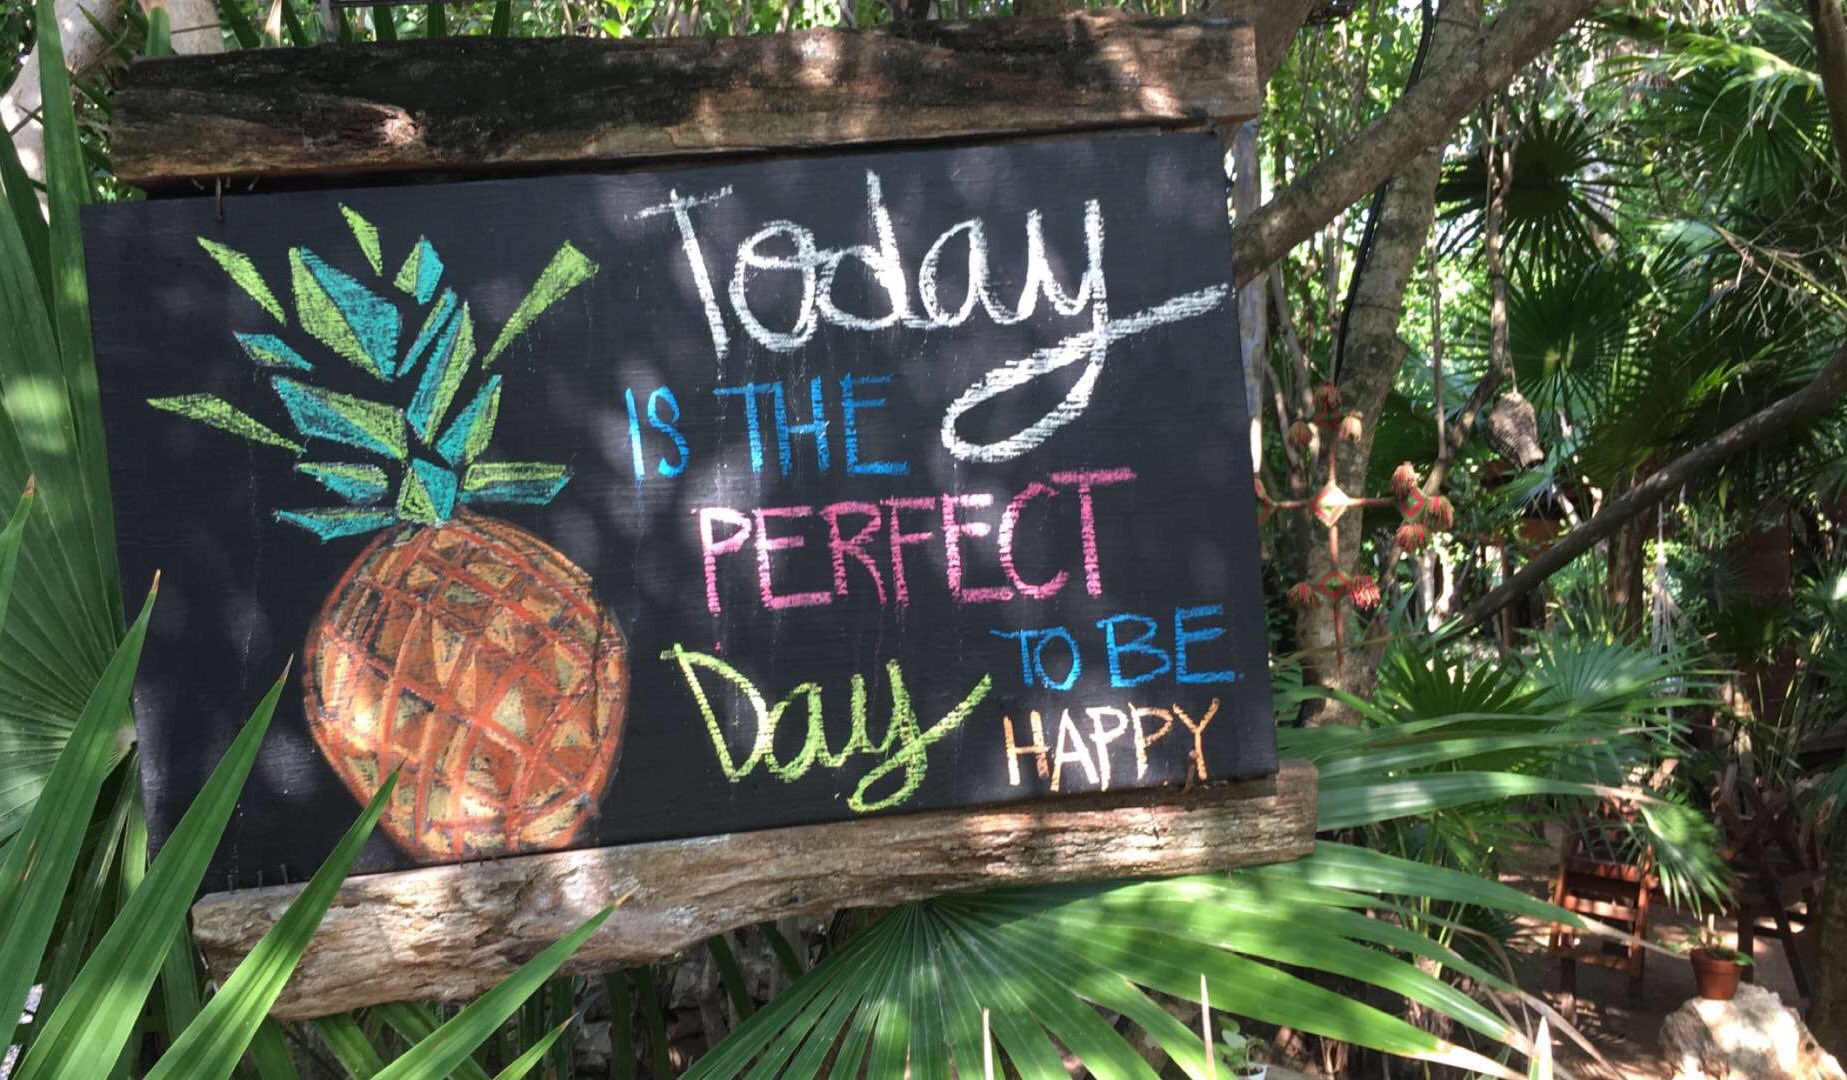 Today
IS THE
PERFECT
Day TO BE
HAPPY